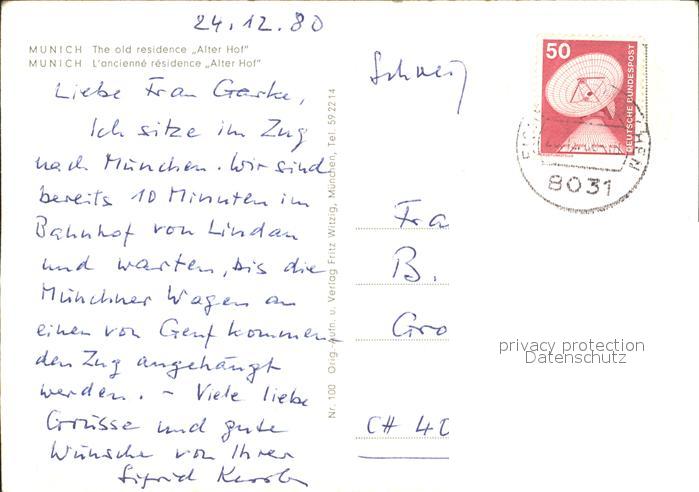 24.12.80
MUNICH The old residence „Alter Hof"
MUNICH L'ancienné résidence „Alter Hof"
Liebe Frau
Ich sitze im Zug
nach München. Wir sind
bereits 10 Minuten im
Bahnhof von Lindau
und warten, bis die
Münchner Wagen an
einen von Genf kommen-
den Zug angehängt
werden. – Viele liebe
Grüsse und gute
Wünsche von Ihrer
Sigrid
Nr. 100 Orig.-Aufn. u. Verlag Fritz Witzig, München, Tel. 59 22 14
Schweiz
50
DEUTSCHE BUNDESPOST
8031
Fra
B.
Gro
CH 40
privacy protection
Datenschutz